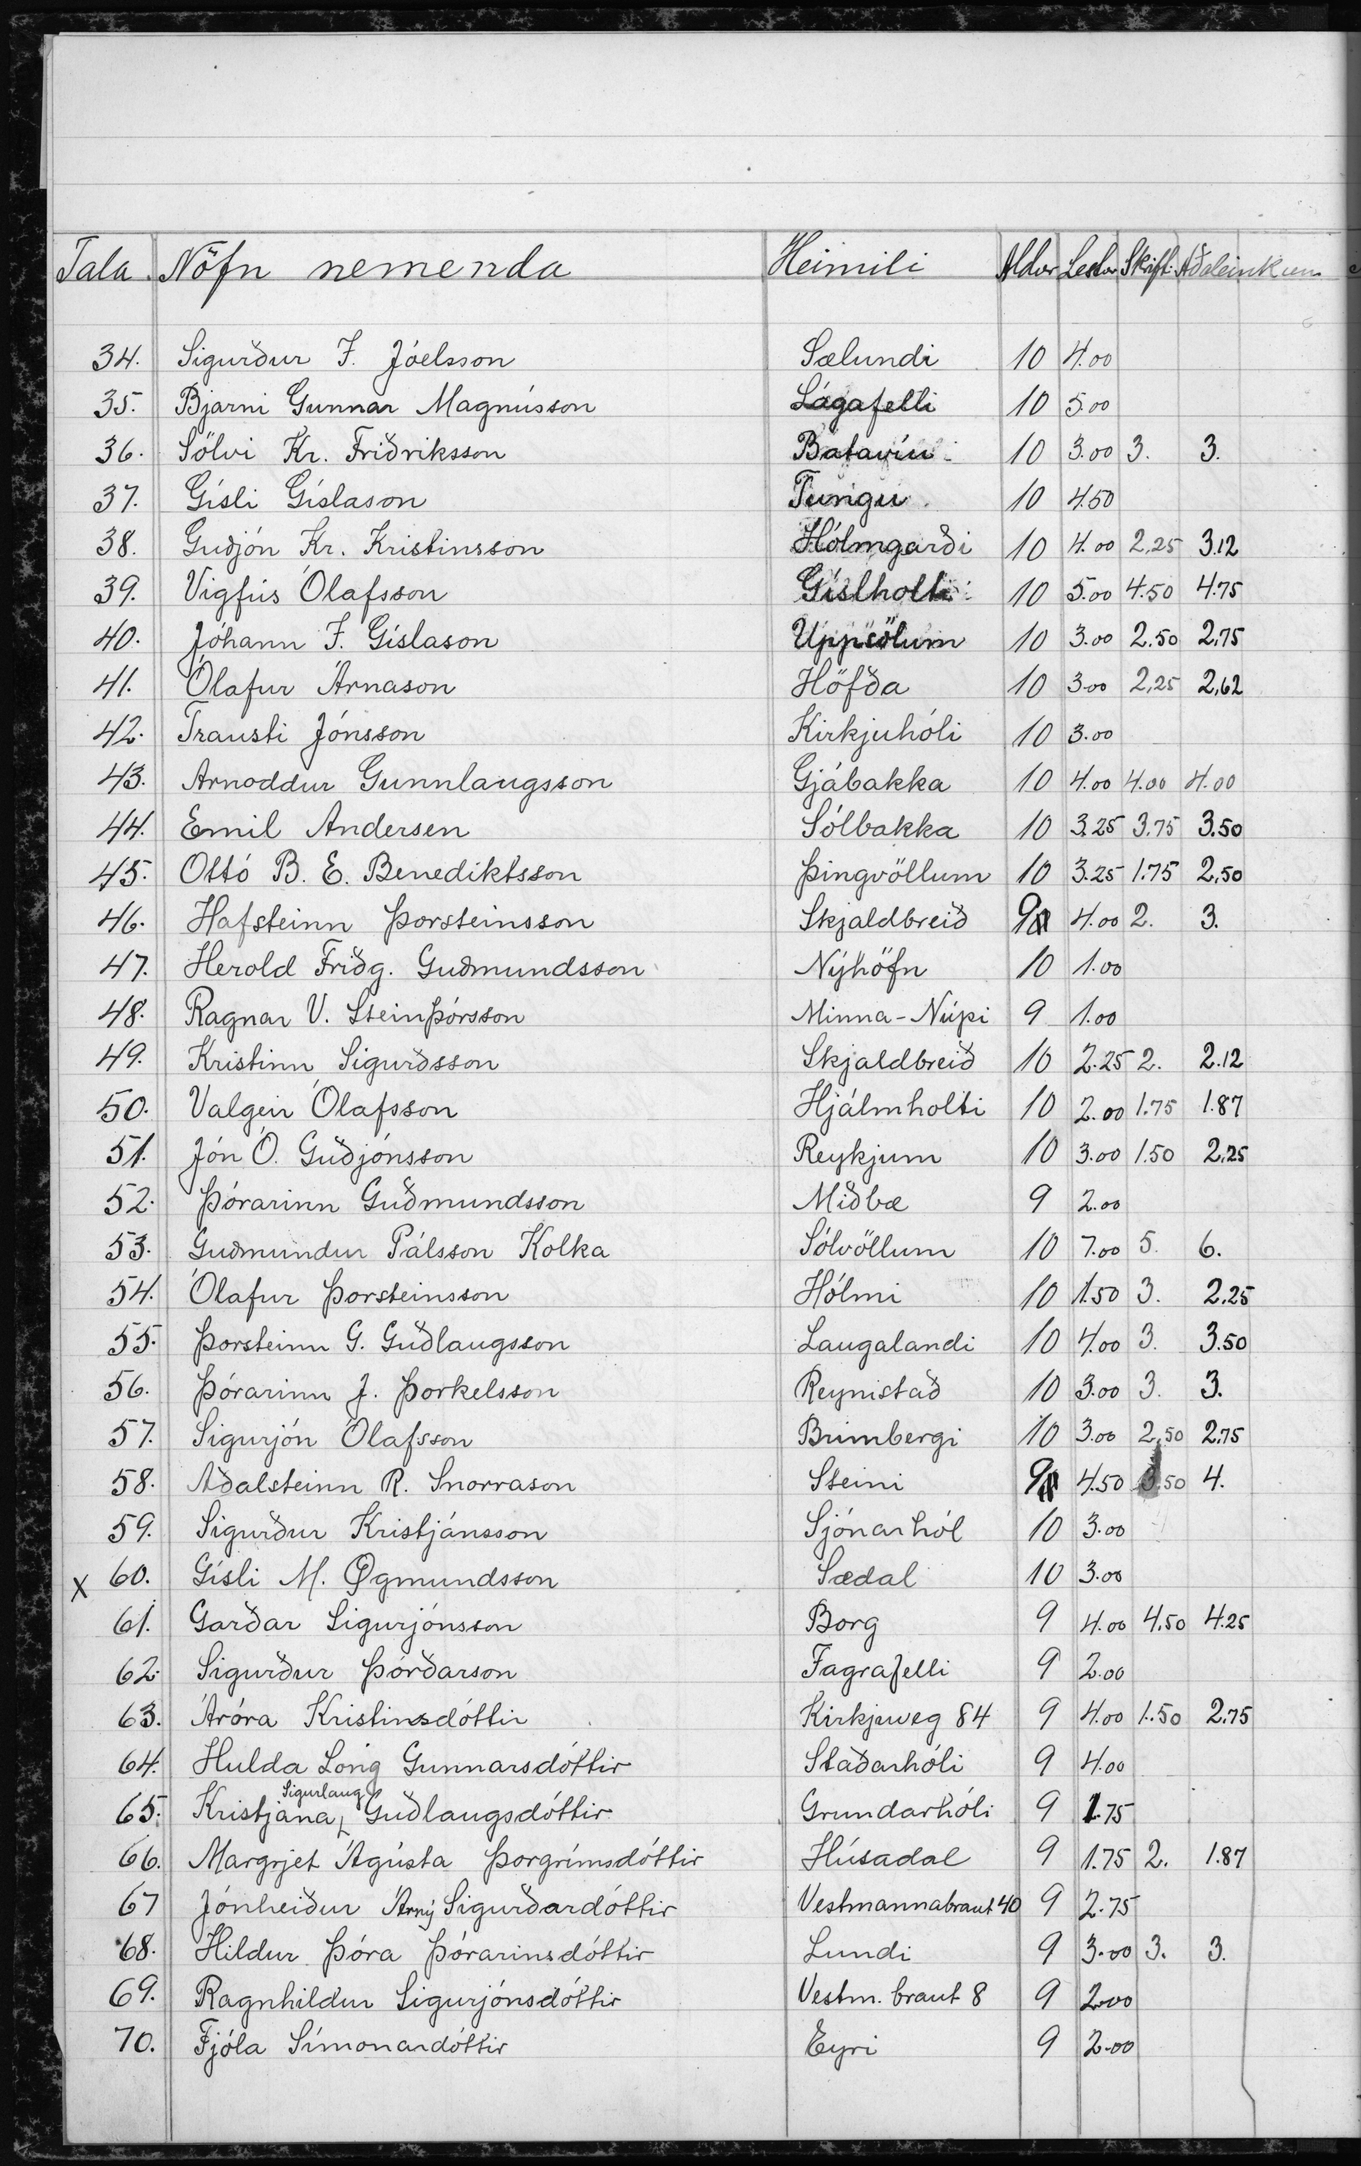 Tala. Nöfn nemenda Heimili Aldur Lestur Skrift. Aðaleinkunn
34. Sigurður F. Jóelsson Sælundi 10 4.00
35. Bjarni Gunnar Magnússon Lágafelli 10 5.00
36. Sölvi Kr. Friðriksson Batavíu 10 3.00 3. 3.
37. Gísli Gíslason Tungu 10 4.50
38. Guðjón Kr. Kristinsson Hólmgarði 10 4.00 2.25 3.12
39. Vigfús Ólafsson Gíslholti 10 5.00 4.50 4.75
40. Jóhann F. Gíslason Uppsölum 10 3.00 2.50 2.75
41. Ólafur Árnason Höfða 10 3.00 2.25 2.62
42. Trausti Jónsson Kirkjuhóli 10 3.00
43. Arnoddur Gunnlaugsson Gjábakka 10 4.00 4.00 4.00
44. Emil Andersen Sólbakka 10 3.25 3.75 3.50
45. Ottó B. E. Benediktsson Þingvöllum 10 3.25 1.75 2.50
46. Hafsteinn Þorsteinsson Skjaldbreið 9 4.00 2. 3.
47. Herold Friðg. Guðmundsson Nýhöfn 10 1.00
48. Ragnar V. Steinþórsson Minna-Núpi 9 1.00
49. Kristinn Sigurðsson Skjaldbreið 10 2.25 2. 2.12
50. Valgeir Ólafsson Hjálmholti 10 2.00 1.75 1.87
51. Jón Ó. Guðjónsson Reykjum 10 3.00 1.50 2.25
52. Þórarinn Guðmundsson Miðbæ 9 2.00
53. Guðmundur Pálsson Kolka Sólvöllum 10 7.00 5. 6.
54. Ólafur Þorsteinsson Hólmi 10 1.50 3. 2.25
55. Þorsteinn G. Guðlaugsson Laugalandi 10 4.00 3. 3.50
56. Þórarinn J. Þorkelsson Reynistað 10 3.00 3. 3.
57. Sigurjón Ólafsson Brimbergi 10 3.00 2.50 2.75
58. Aðalsteinn R. Snorrason Steini 9 4.50 3.50 4.
59. Sigurður Kristjánsson Sjónarhól 10 3.00
x 60. Gísli M. Øgmundsson Sædal 10 3.00
61. Garðar Sigurjónsson Borg 9 4.00 4.50 4.25
62. Sigurður Þórðarson Fagrafelli 9 2.00
63. Áróra Kristinsdóttir Kirkjuveg 84 9 4.00 1.50 2.75
64. Hulda Long Gunnarsdóttir Staðarhóli 9 4.00
65. Kristjana Sigurlaug Guðlaugsdóttir Grundarhóli 9 1.75
66. Margrjet Ágústa Þorgrímsdóttir Húsadal 9 1.75 2. 1.87
67 Jónheiður Árný Sigurðardóttir Vestmannabraut 40 9 2.75
68. Hildur Þóra Þórarinsdóttir Lundi 9 3.00 3. 3.
69. Ragnhildur Sigurjónsdóttir Vestm. braut 8 9 2.00
70. Fjóla Símonardóttir Eyri 9 2.00